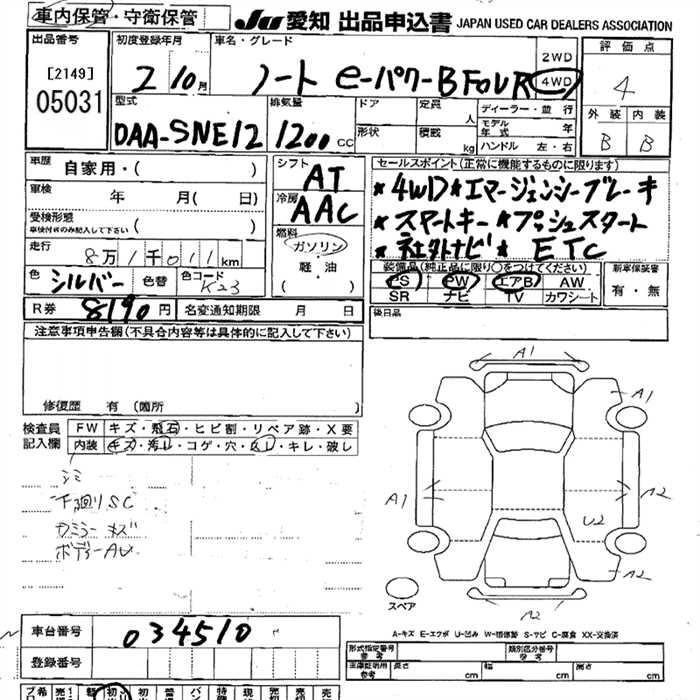 車内保管・守衛保管
JU 愛知 出品申込書 JAPAN USED CAR DEALERS ASSOCIATION
出品番号
[2149]
05031
初度登録年月
2 10月
車名・グレード
ノート e-パワーB FOUR
2WD
4WD
評価点
4
外装 内装
B B
型式
DAA-SNE12
排気量
1200 CC
ドア
定員 人
形状
積載 kg
ディーラー・並行
モデル年式 年
ハンドル 左・右
車歴 自家用・( )
車検 年 月( 日)
受検形態
車検付のみ記入して下さい ( )
走行 8万1千011km
色 シルバー 色替 色コード K23
シフト AT
冷房 AAC
燃料
ガソリン
軽油
( )
セールスポイント(正常に機能するものに限ります)
★4WD★エマージェンシーブレーキ
★スマートキー★プッシュスタート
★社外ナビ★ ETC
装備品(純正品に限り○をつけてください)
PS PW エアB AW
SR ナビ TV カワシート
新車保証書
有・無
R券 8190円 名変通知期限 月 日
後日品
注意事項申告欄(不具合内容等は具体的に記入して下さい)
修復歴 有 (箇所 )
検査員記入欄
FW キズ・飛石・ヒビ割・リペア跡・X要
内装 キズ・汚レ・コゲ・穴・スレ・キレ・破し
シミ
下廻りSC
カミラーキズ
A1
A1
A1
A2
U2
A2
A2
スペア
A-キズ E-エクボ U-凹み W-補修跡 S-サビ C-腐食 XX-交換済
車台番号 034510
登録番号
形式指定番号 参考
類別区分番号 参考
車庫証明用 参考
長さ cm
幅 cm
高さ cm